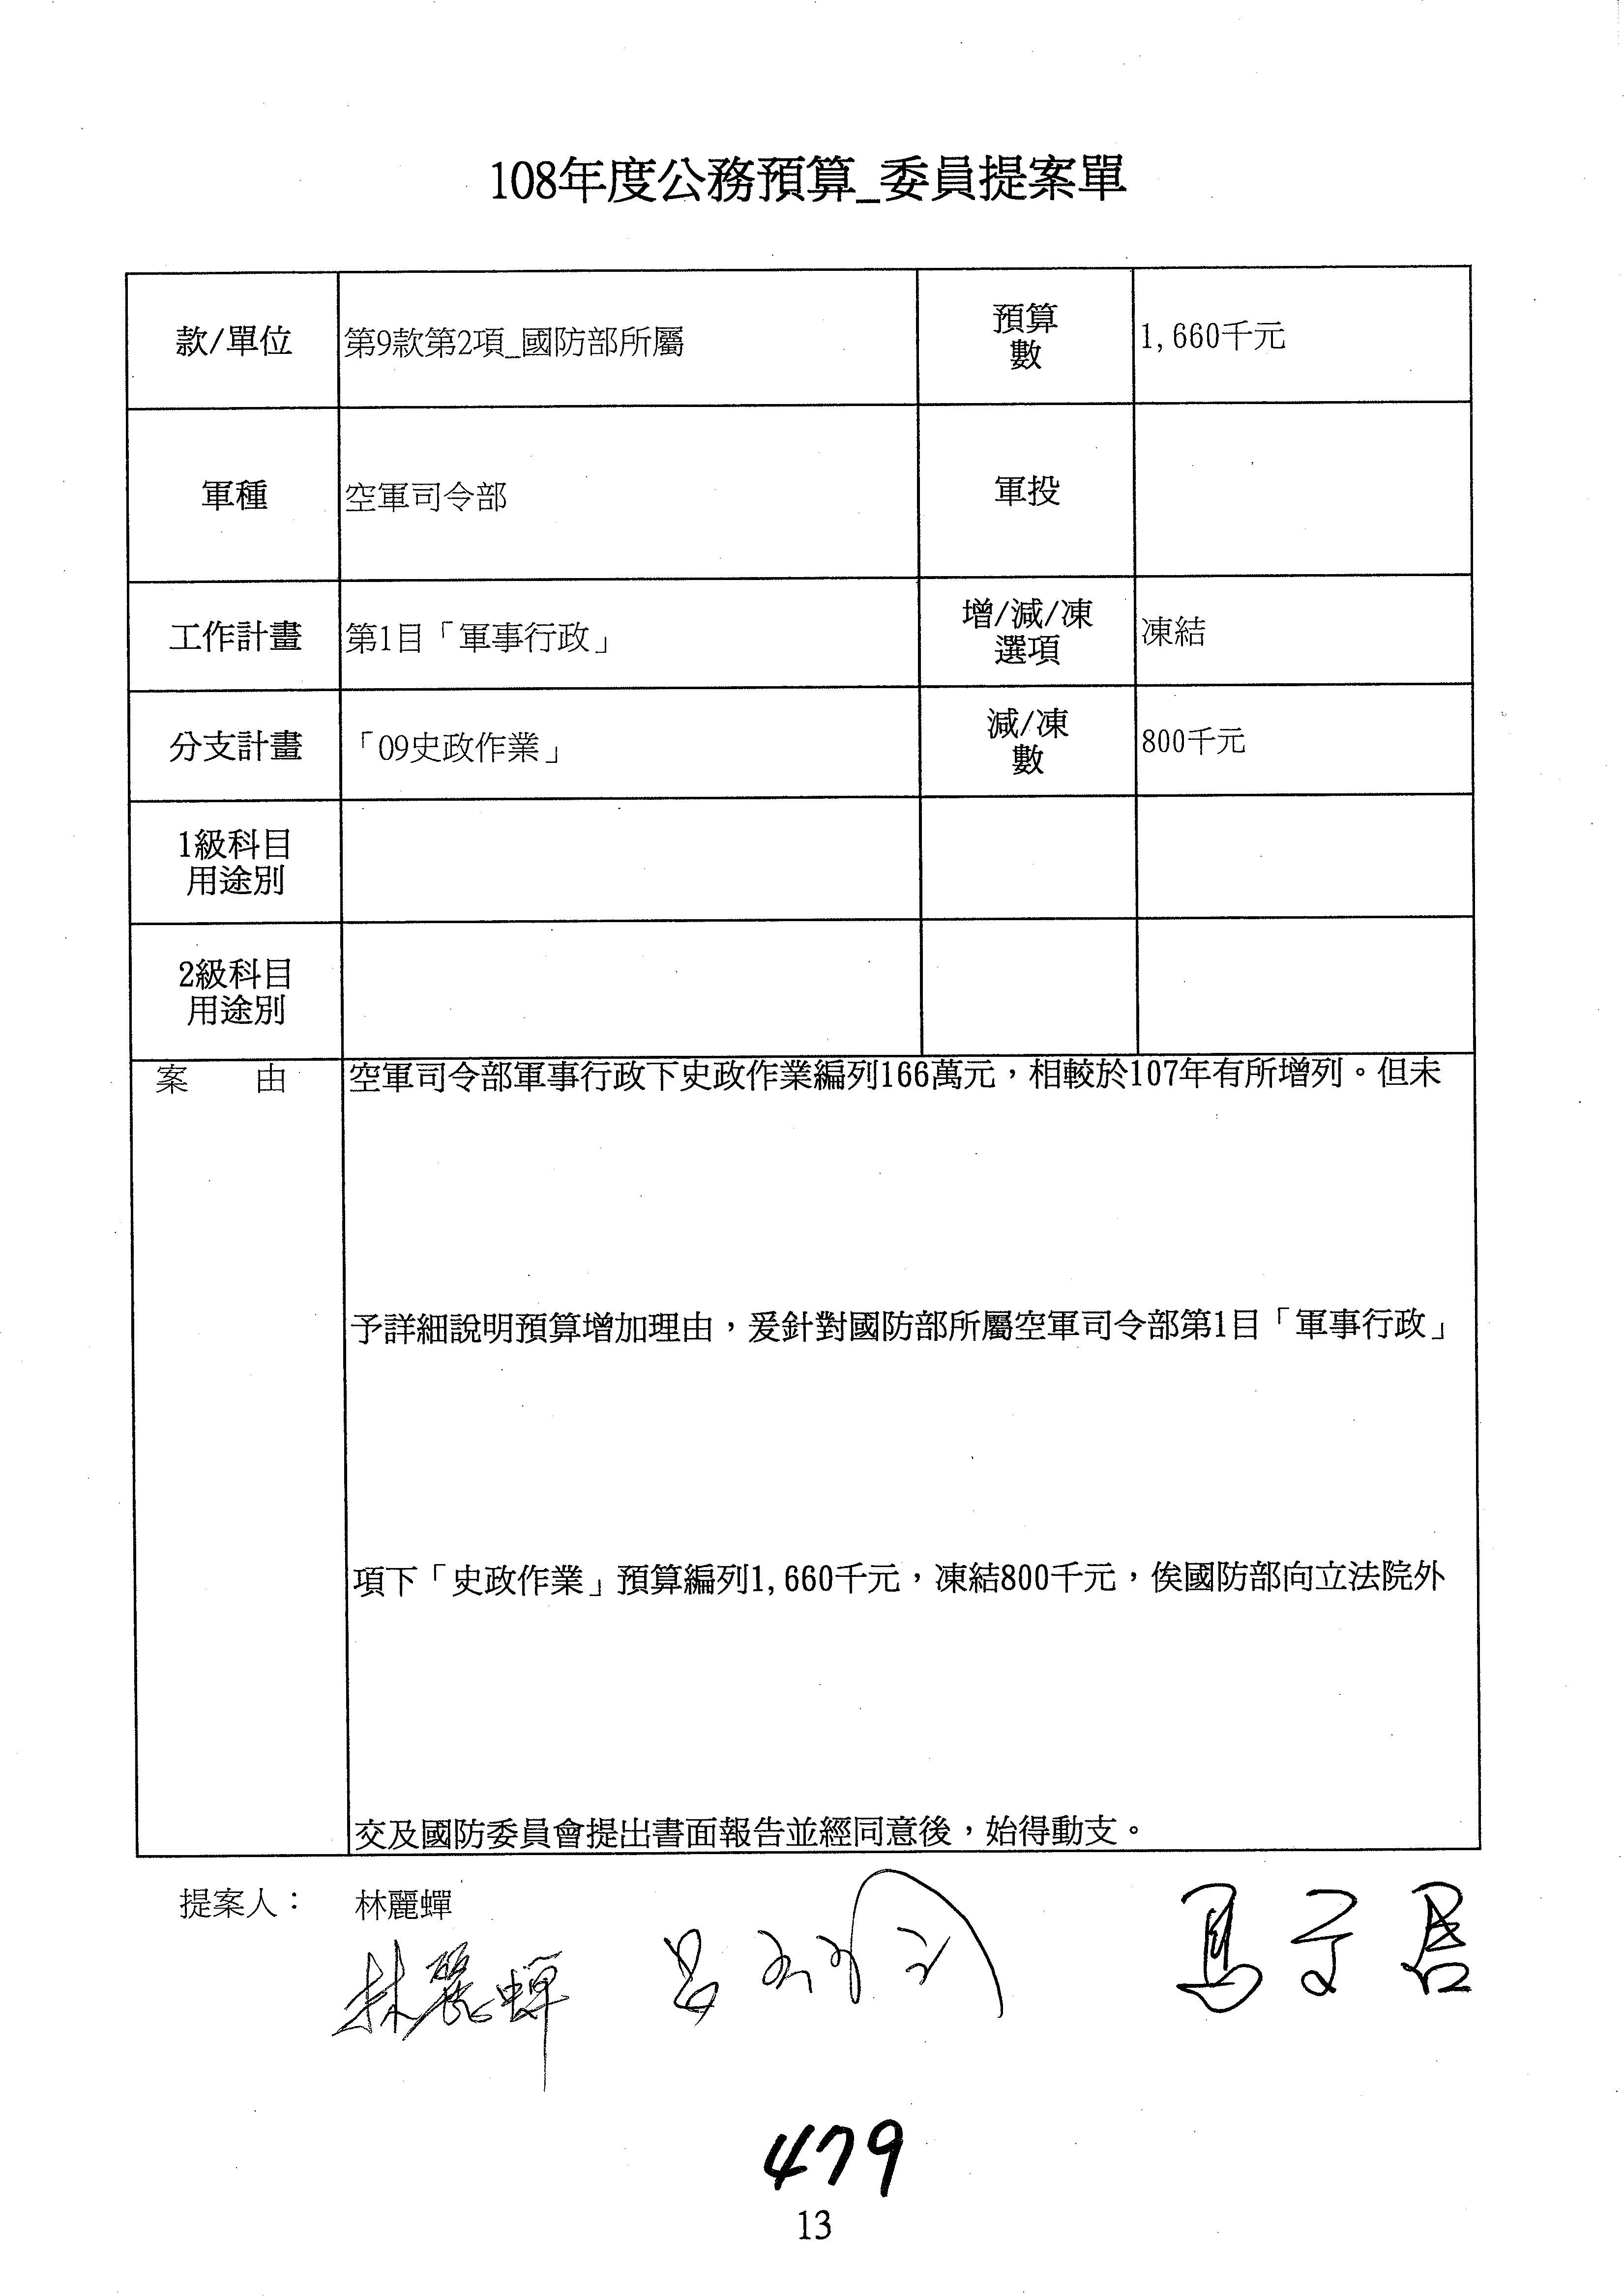 108年度公務預算_委員提案單
款/單位 第9款第2項_國防部所屬 預算數 1,660千元
軍種 空軍司令部 軍投
工作計畫 第1目「軍事行政」 增/減/凍選項 凍結
分支計畫 「09史政作業」 減/凍數 800千元
1級科目
用途別
2級科目
用途別
案 由 空軍司令部軍事行政下史政作業編列166萬元，相較於107年有所增列。但未
予詳細說明預算增加理由，爰針對國防部所屬空軍司令部第1目「軍事行政」
項下「史政作業」預算編列1,660千元，凍結800千元，俟國防部向立法院外
交及國防委員會提出書面報告並經同意後，始得動支。
提案人： 林麗蟬
林麗蟬 馬文君
479
13